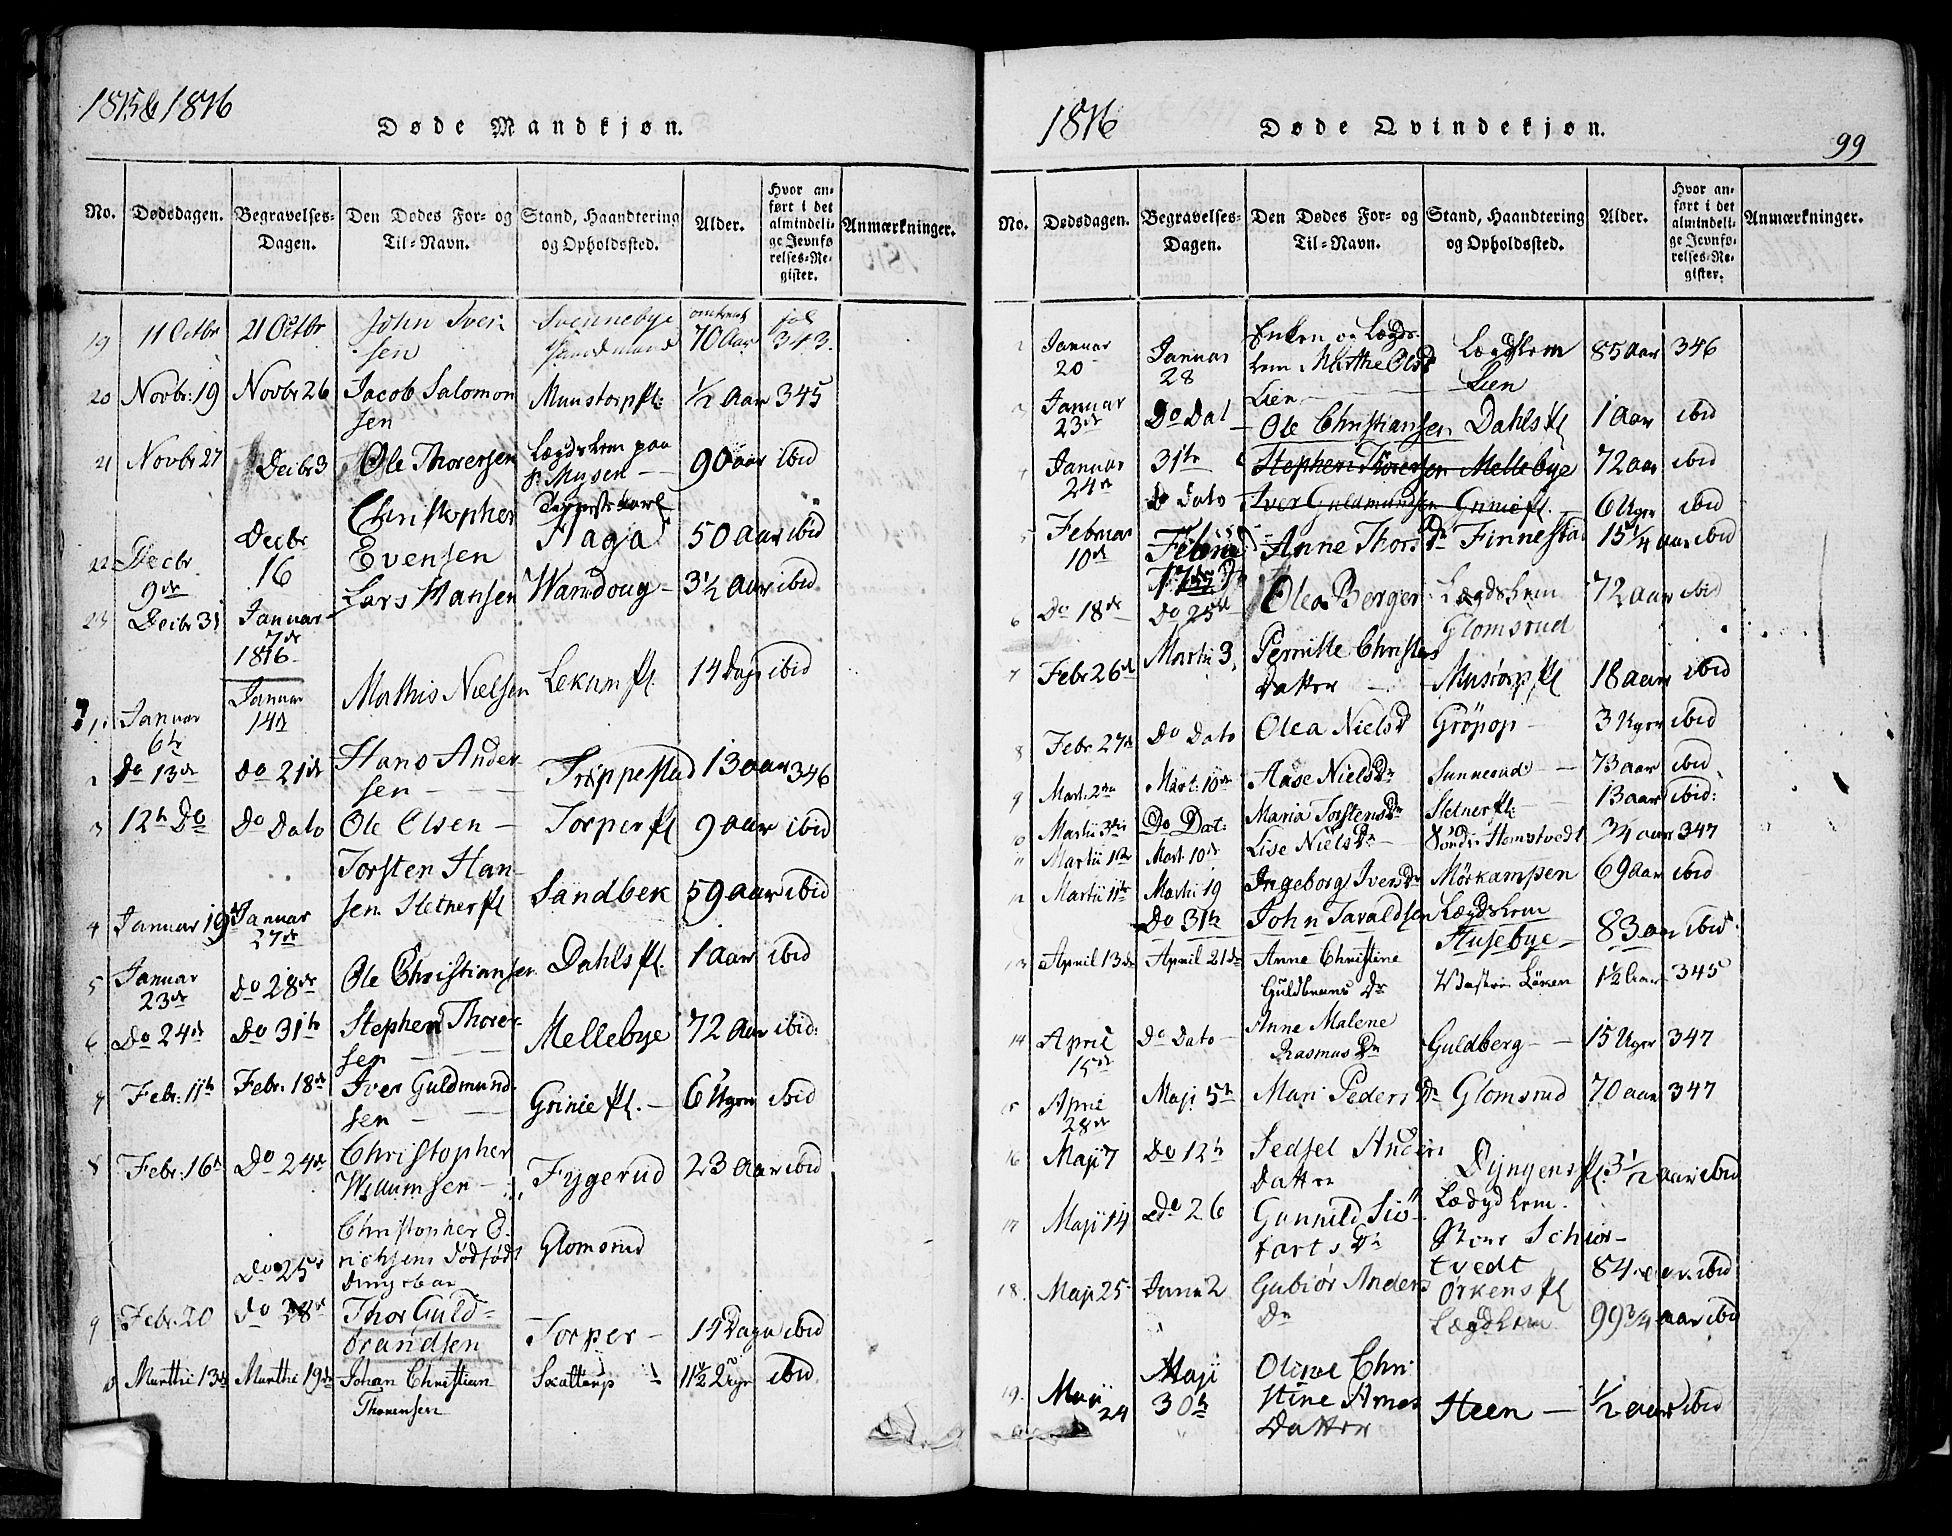 1815 & 1816
Døde Mandkjøn.
No. Dødsdagen. Begravelses-Dagen. Den Dødes For- og Til-Navn. Stand, Haandtering og Opholdssted. Alder. Hvor anført i det almindelige Jevnførelses-Register. Anmærkninger.
19 11 Octbr 21 Octbr John Iversen Svennebye omtrent 70 Aar fol 343.
20 Novbr: 19 Novbr 26 Jacob Salomonsen Munstorp pl: 1/2 Aar 345
21 Novbr 27 Decbr 3 Ole Thorersen Lægdslem paa Musen 90 aar ibid
22 Decbr 9de Decbr 16 Christopher Evensen Haga 50 Aar ibid
23 Decbr 31 Januar 7de 1816 Lars Hansen Wamdoug 3 1/2 Aar ibid.
1. Januar 6te Januar 14de Mathis Nielsen Lekum pl. 14 Dage ibid
2 Do 13de Do 21de Hans Andersen Trippestad 13 aar 346
3 12te Do Do Dato Ole Olsen Torper pl 9 aar ibid
4 Januar 19 Januar 27de Torsten Hansen Sletner pl Sandbek 59 aar ibid
5 Januar 23de Do 28de Ole Christiansen Dahls pl. 1 aar ibid
6 Do 24de Do 31te Stephen Thorersen Mellebye 72 Aar ibid:
7 Febr: 11te Febr: 18de Iver Guldmundsen Grinie pl. 6 Uger ibid
8 Febr: 16de Do 24de Christopher Willumsen Fygerud 23 Aar ibid
Do 25de Christopher Erichsens dødfødt drengebarn Glomsrud
9 Febr. 20 Do 28de Thor Guldbrandsen Torper 14 Dage ibid
10 Marthi 13de Marthi 19de Johan Christian Thorensen Skattrup ibid
1816
Døde Qvindekjøn.
99
No. Dødsdagen. Begravelses-Dagen. Den Dødes For- og Til-Navn. Stand, Haandtering og Opholdssted. Alder. Hvor anført i det almindelige Jevnførelses-Register. Anmærkninger.
Januar 20 Januar 28 Enken og Lægdslem Marthe Olsdr Lien Lægdslem Lien 85 Aar 346
Januar 23de Do Dat Ole Christiansen Dahls pl 1 Aar ibid
Januar 24de 31te Stephen Thorersen Mellebye 72 aar ibid
Do Dato Iver Guldmundsen Grinie pl. 6 Uger ibid
5 Februar 10de Februar 17de Anne Thorsdr Finnestad 15 1/4 aar ibid
6 Do 18de Do 25de Olea Berger Lægdslem Glomsrud 72 aar ibid
7 Febr 26de Martii 3. Pernille Christens Datter Mustorp pl 18 aar ibid
8 Febr 27de Do Dato Olea Nielsdr Gröpop 3 Uger ibid
9 Mart: 2den Mart: 10de Aase Nielsdr Sunnerud 73 aar ibid
10 Martii 3die Do Dat: Maria Torstensdr Sletner pl: 13 aar ibid:
11 Martii 1ste Mart 10de Lise Nielsdr Söndre Homstvedt 3/4 aar 347
12 Martii 11te Martii 19 Ingeborg Iversdr Mörkampen 69 aar ibid
Do 31te John Taraldsen Lægdslem Husebye 83 aar ibid
13 April 13de April 21de Anne Christine Guldbrans Dr Vestre Löken 1 1/2 Aar 345
14 April 15de Do Dato Anne Malene Rasmus Dr Guldberg 15 Uger 347
15 April 28de Maji 5te Mari Peders Dr Glomsrud 70 aar 347
16 Maji 7 Do 12te Sedsel Anders Datter Dyngens pl. 3 1/2 aar ibid
17 Maji 14 Do 26 Gunnild Siöfarts Dr Lægdslem Store Schiörtvedt 84 aar ibid
18. Maji 25 Junii 2 Gubiör Anders Dr Örkens pl Lægdslem 99 3/4 aar ibid
19. Maji 24 Maji 30te Oline Christine Arnes Datter Heen 1/2 aar ibid